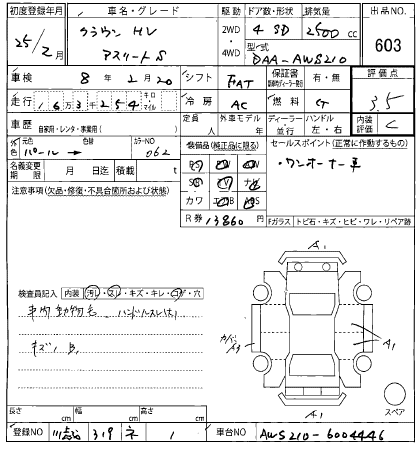 初度登録年月 車名・グレード 駆動 ドア数・形状 排気量 出品NO.
25/2月 クラウン HV アスリートS 2WD ・ 4WD 4 SD 2500 cc 603
型式 DAA-AWS210
車検 8年2月20 シフト FAT 保証書 有・無 評価点
走行 163254 キロ マイル 冷房 AC 燃料 3.5
車歴 自家用・レンタ・事業用( ) 定員 人 外車モデル ディーラー・並行 ハンドル 左・右 内装評価 C
外色 元色 パール 色替 カラーNO 062
装備品(純正品に限る) セールスポイント(正常に作動するもの)
PS PW SR TV ナビ カワ エアB ABS
・ワンオーナー車
名義変更期限 月 日迄 積載 t
R券 13860円
注意事項(欠品・修復・不具合箇所および状態)
Fガラス トビ石・キズ・ヒビ・ワレ・リペア跡
検査員記入 内装 汚レ・スレ・キズ・キレ・コゲ・穴
車内動物毛 ハンドルスレ
キズ、B、
A1
A1
A1
スペア
長さ cm 幅 cm 高さ cm
登録NO 319 ネ 1 車台NO AWS210-6004446